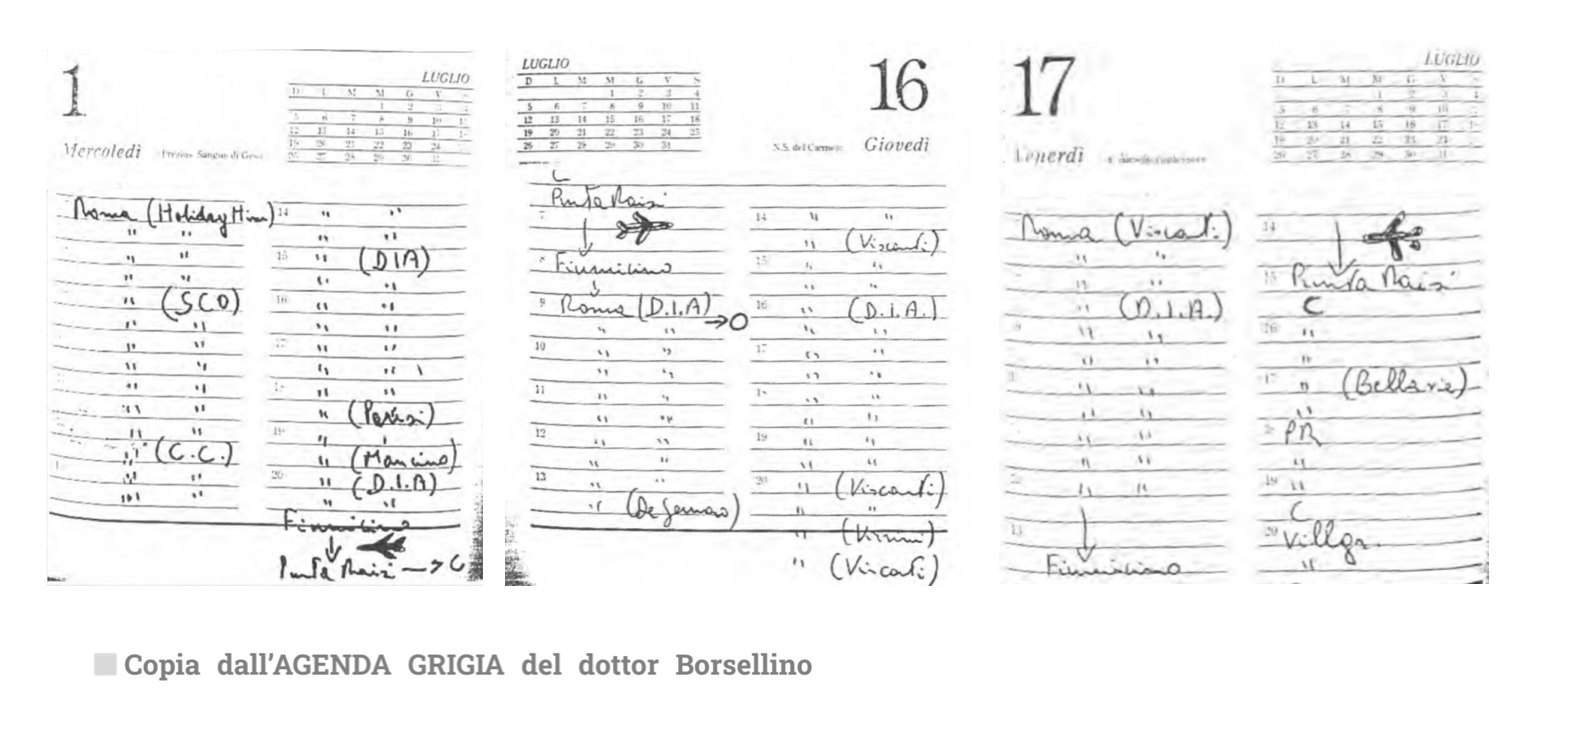 1
LUGLIO
D L M M G V S
1 2 3 4
5 6 7 8 9 10 11
12 13 14 15 16 17 18
19 20 21 22 23 24
26 27 28 29 30 31
Mercoledì
Roma (Holiday Hinn)
" "
" "
" (SCO)
" "
" "
" "
" "
" "
" "
" (C.C.)
" "
" "
14 " "
" "
15 " (DIA)
" "
16 " "
" "
17 " "
" "
" "
" (Parisi)
19 " "
" (Mancino)
20 " (D.I.A)
" "
Fiumicino
Punta Raisi → C
LUGLIO
D L M M G V S
1 2 3 4
5 6 7 8 9 10 11
12 13 14 15 16 17 18
19 20 21 22 23 24 25
26 27 28 29 30 31
16
N.S. del Carmelo Giovedì
C
Punta Raisi
7
8 Fiumicino
9 Roma (D.I.A) → O
" "
10 " "
" "
11 " "
" "
12 " "
" "
13 " "
" (De Gennaro)
14 " "
" (Visconti)
15 " "
" "
16 " (D.I.A.)
" "
17 " "
" "
" "
" "
19 " "
" "
20 " (Visconti)
" "
"
" (Visconti)
17
LUGLIO
D L M M G V S
1 2 3 4
5 6 7 8 9 10
12 13 14 15 16 17
19 20 21 22 23 24
26 27 28 29 30 31
Venerdì
Roma (Visconti)
" "
" "
" (D.I.A.)
" "
" "
" "
" "
" "
" "
" "
13
Fiumicino
14
15 Punta Raisi
C
16 "
"
17 " (Bellavia)
"
PR
"
19 "
C
20 Villgr.
"
Copia dall'AGENDA GRIGIA del dottor Borsellino